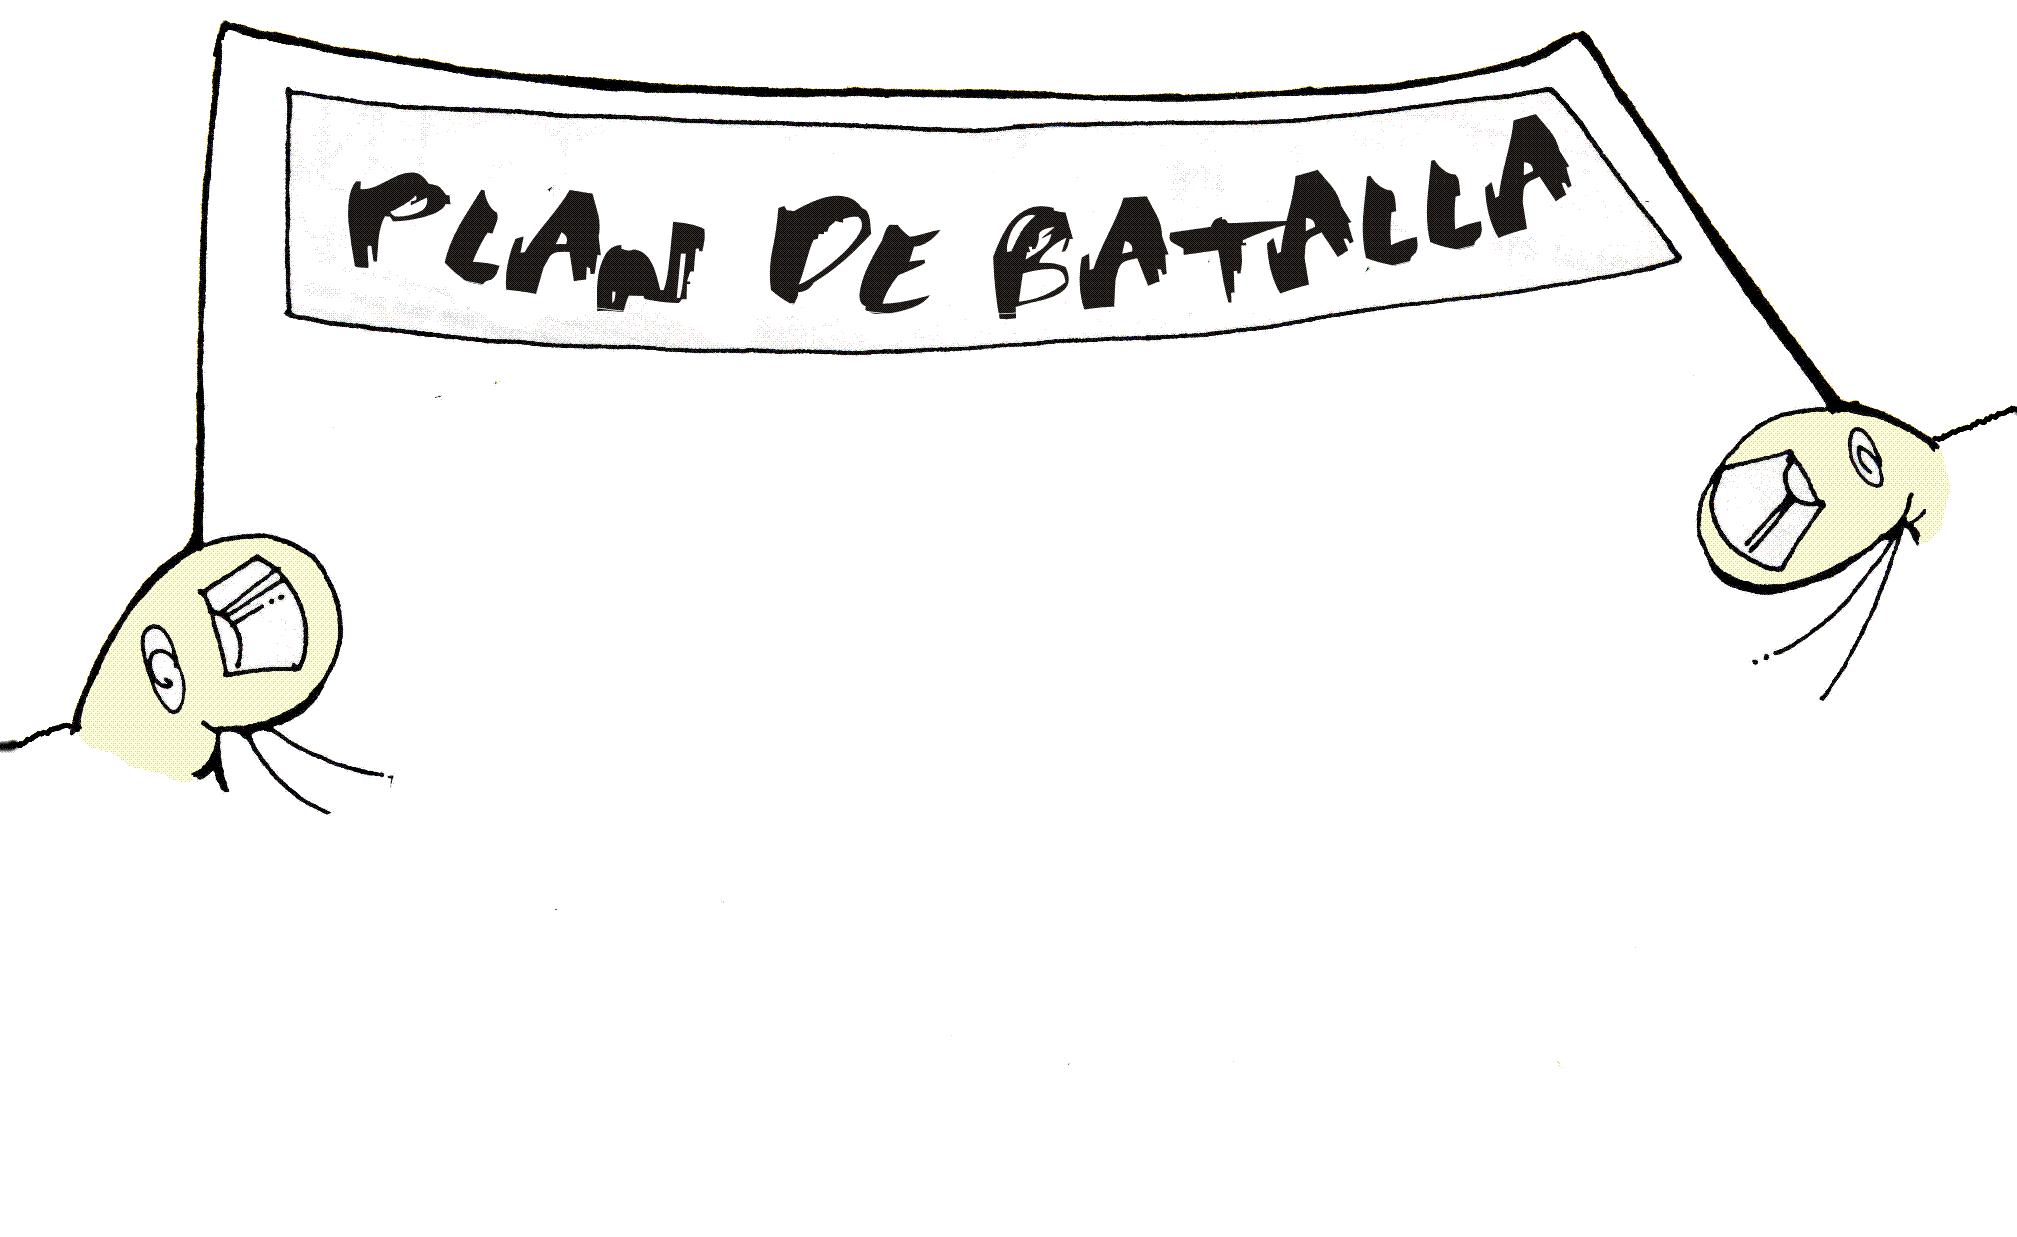 PLAN DE BATALLA